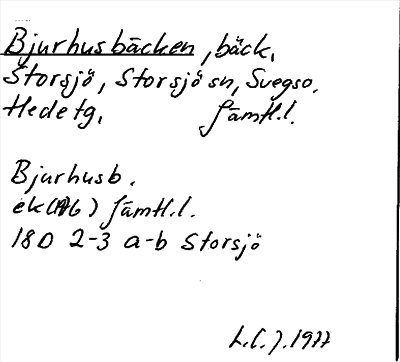 Bjurhusbäcken, bäck,
Storsjö, Storsjö sn, Svegso,
Hede tg, Jämtl.l.
Bjurhusb.
ek(Ab) Jämtl.l.
18D 2-3 a-b Storsjö
L.C.J. 1977